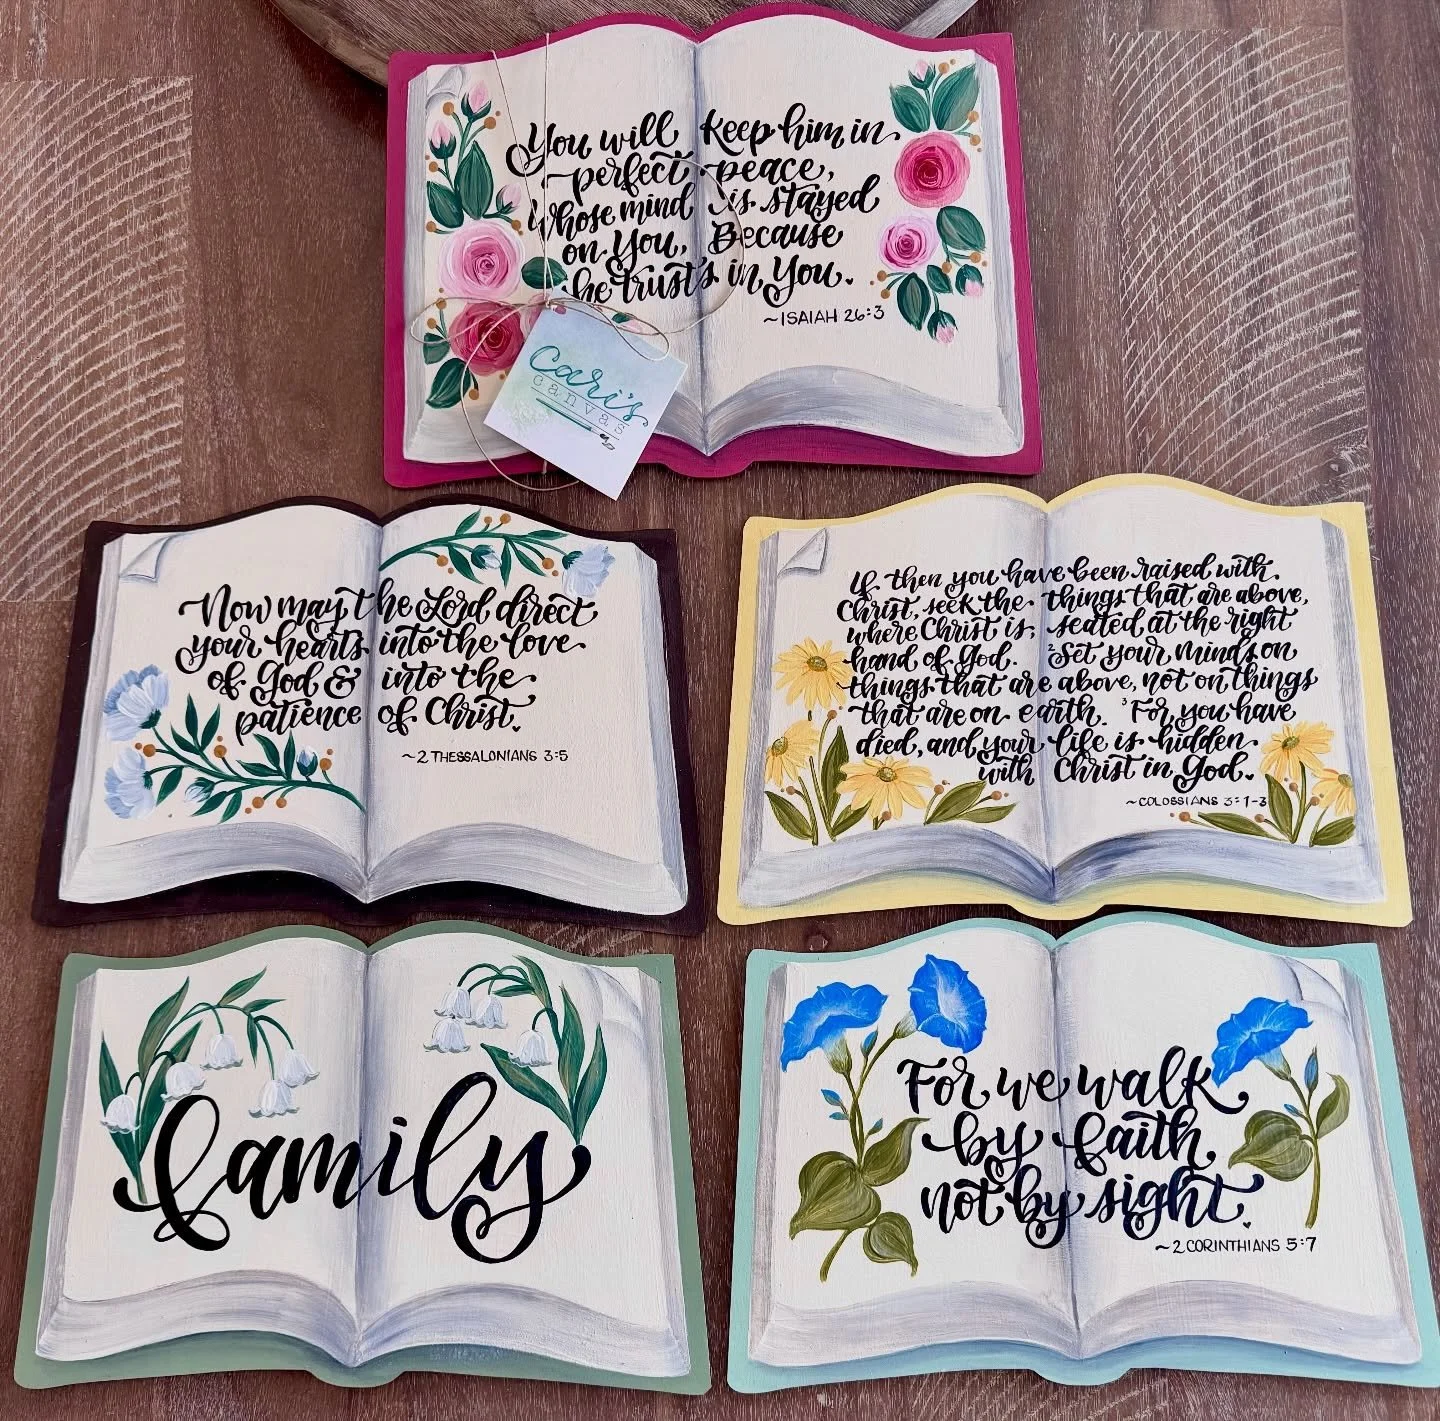 You will keep him in
perfect peace,
whose mind is stayed
on You, Because
he trust's in You.
~ISAIAH 26:3
Cari's
canvas
Now may the Lord direct
your hearts into the love
of God & into the
patience of Christ.
~2 THESSALONIANS 3:5
If then you have been raised with
Christ, seek the things that are above,
where Christ is, seated at the right
hand of God. 2Set your minds on
things that are above, not on things
that are on earth. 3For you have
died, and your life is hidden
with Christ in God.
~COLOSSIANS 3:1-3
family
For we walk
by faith,
not by sight.
~2 CORINTHIANS 5:7